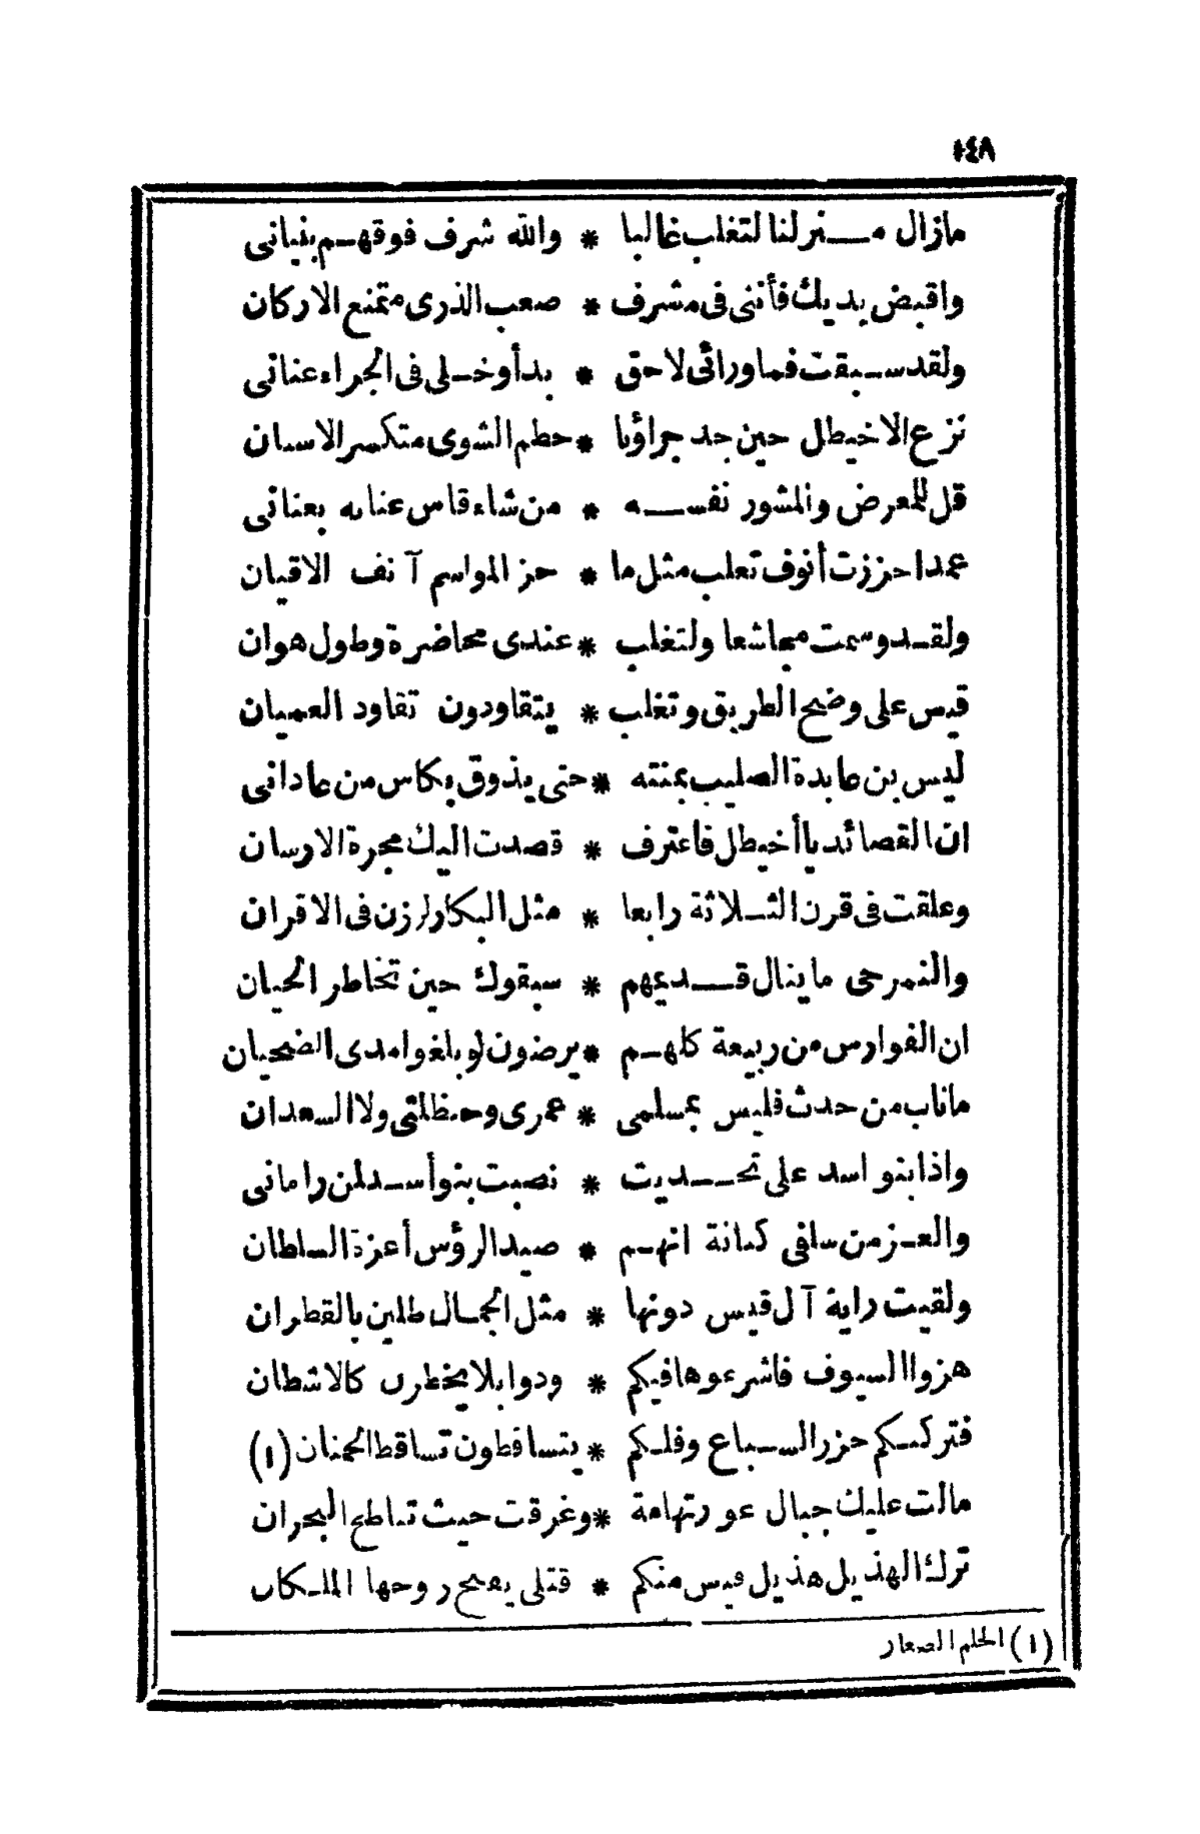 ١٤٨
مازال منزلنا لتغلب غالبا * والله شرف فوقهم بنيانى
واقبض يديك فأننى فى مشرف * صعب الذرى متمنع الاركان
ولقد سبقت فما ورائى لاحق * بدأ وخلى فى الجراء عنانى
نزع الاخيطل حين جد جراؤنا * حطم الشوى متكسر الاسنان
قل للمعرض والمشور نفسه * من شاء قاس عنانه بعنانى
عمدا حززت أنوف تغلب مثل ما * حز المواسم آنف الاقيان
ولقد وسمت مجاشعا ولتغلب * عندى محاضرة وطول هوان
قيس على وضح الطريق وتغلب * يتقاودون تقاود العميان
ليس بن عابدة الصليب بمنته * حتى يذوق بكاس من عادانى
ان القصائد ياأخيطل فاعترف * قصدت اليك مجرة الارسان
وعلقت فى قرن الثلاثة رابعا * مثل البكار لززن فى الاقران
والنمر حى ماينال قديمهم * سبقوك حين تخاطر الحيان
ان الفوارس من ربيعة كلهم * يرضون لو بلغوا مدى الضحيان
ماناب من حدث فليس بمسلمى * عمرى وحنظلتى ولا السعدان
واذا بنو اسد على تحديت * نصبت بنو أسد لمن رامانى
والعز من سلفى كنانة انهم * صيد الرؤس أعزة السلطان
ولقيت راية آل قيس دونها * مثل الجمال طلين بالقطران
هزوا السيوف فاشرعوها فيكم * وذوابلا يخطرن كالاشطان
فتركنكم جزر السباع وفلكم * يتساقطون تساقط الحمنان (١)
مالت عليك جبال غور تهامة * وغرقت حيث تناطح البحران
ترك الهذيل هذيل قيس منكم * قتلى يقبح روحها الملكان
(١) الحلم الصغار